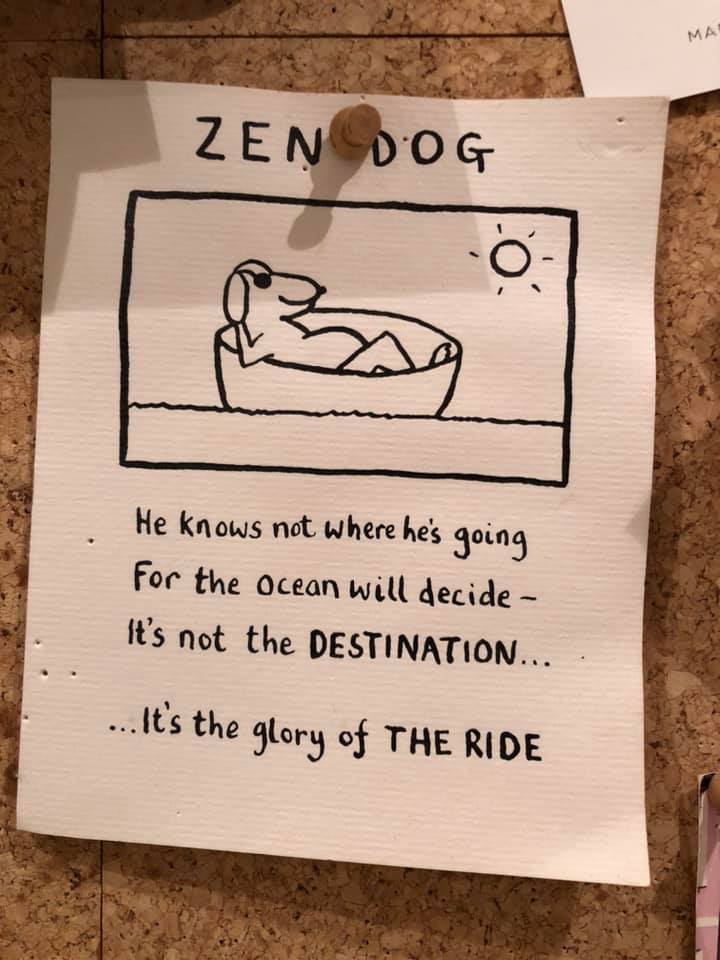 ZEN DOG
He knows not where he's going
For the ocean will decide –
It's not the DESTINATION...
...It's the glory of THE RIDE